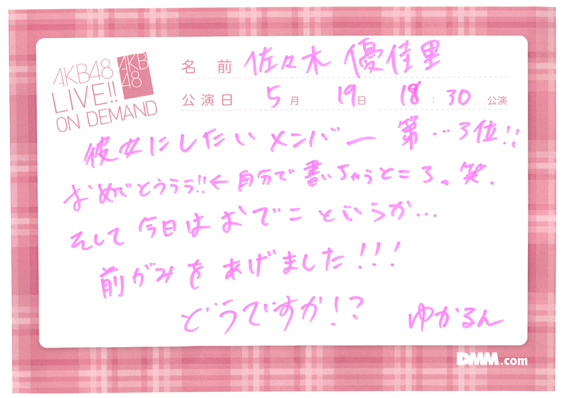 AKB48
LIVE!!
ON DEMAND
AKB
48
名前 佐々木 優佳里
公演日 5月 19日 18:30 公演
彼女にしたいメンバー 第…3位!!
おめでとうううう!!←自分で書いちゃうところ。笑.
そして今日はおでこというか…
前がみをあげました!!!
どうですか!?
ゆかるん
DMM.com